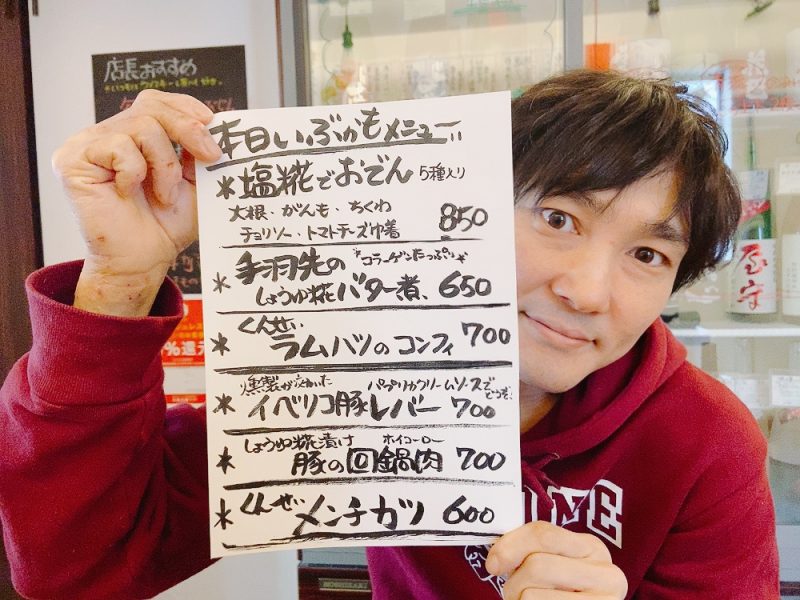 店長おすすめ
本日いぶかもメニュー
*塩糀でおでん 5種入り
大根・がんも・ちくわ
チョリソー・トマトチーズ巾着 850
*手羽先の コラーゲンたっぷり
しょうゆ糀バター煮、650
くんせい
*ラムハツのコンフィ 700
燻製が効いた パプリカクリームソースでどうぞ!
*イベリコ豚レバー 700
しょうゆ糀漬け ホイコーロー
*豚の回鍋肉 700
*くんせい メンチカツ 600
%還元
屋守
HOSHIZAKI